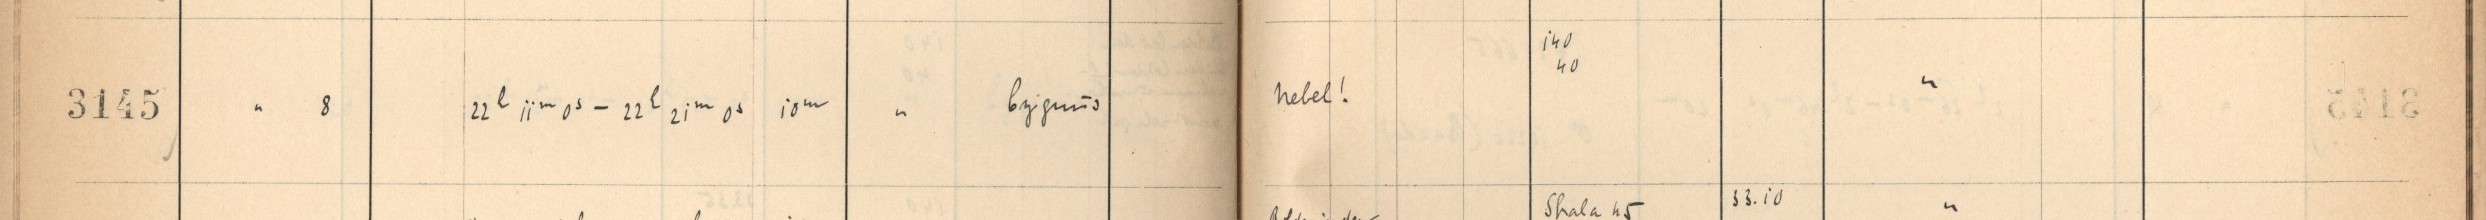 140
40
3145 " 8 22h 11m 0s – 22h 21m 0s 10m " Cygnus Nebel! "
Skala 45 33.10 "